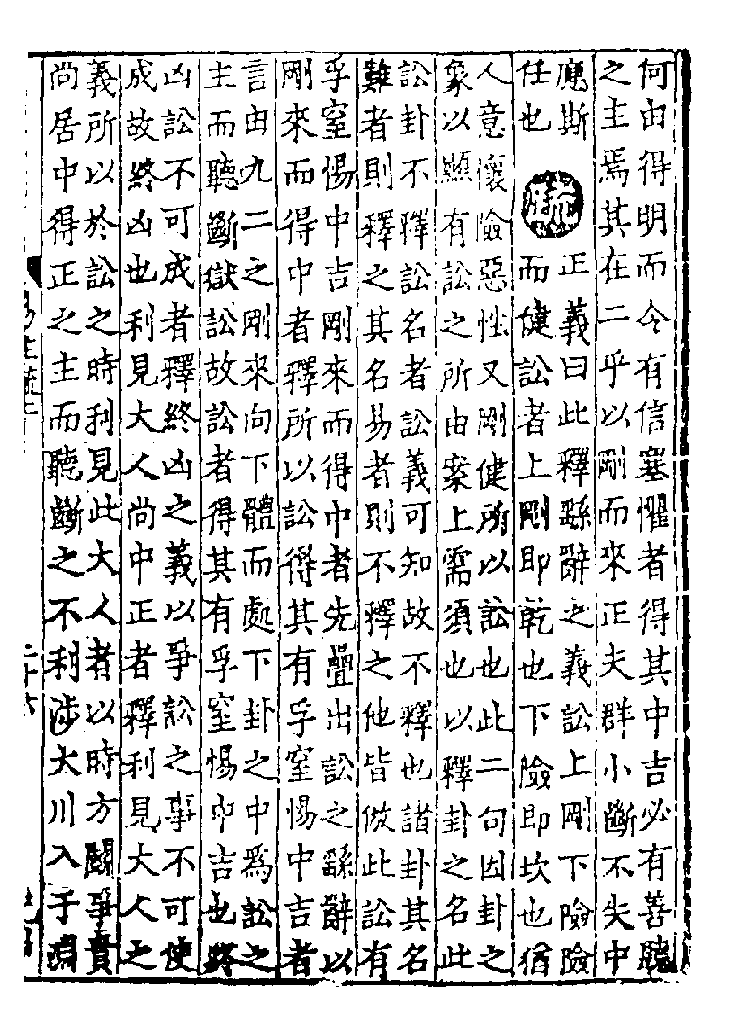 何由得明而令有信塞懼者得其中吉必有善聽
之主焉其在二乎以剛而來正夫群小斷不失中
應斯
任也
疏
正義曰此釋繇辭之義訟上剛下險險
而健訟者上剛即乾也下險即坎也猶
人意懷險惡性又剛健所以訟也此二句因卦之
象以顯有訟之所由案上需須也以釋卦之名此
訟卦不釋訟名者訟義可知故不釋也諸卦其名
難者則釋之其名易者則不釋之他皆倣此訟有
孚窒惕中吉剛來而得中者先疊出訟之繇辭以
剛來而得中者釋所以訟得其有孚窒惕中吉者
言由九二之剛來向下體而處下卦之中爲訟之
主而聽斷獄訟故訟者得其有孚窒惕中吉也終
凶訟不可成者釋終凶之義以爭訟之事不可使
成故終凶也利見大人尚中正者釋利見大人之
義所以於訟之時利見此大人者以時方鬬爭貴
尚居中得正之主而聽斷之不利涉大川入于淵